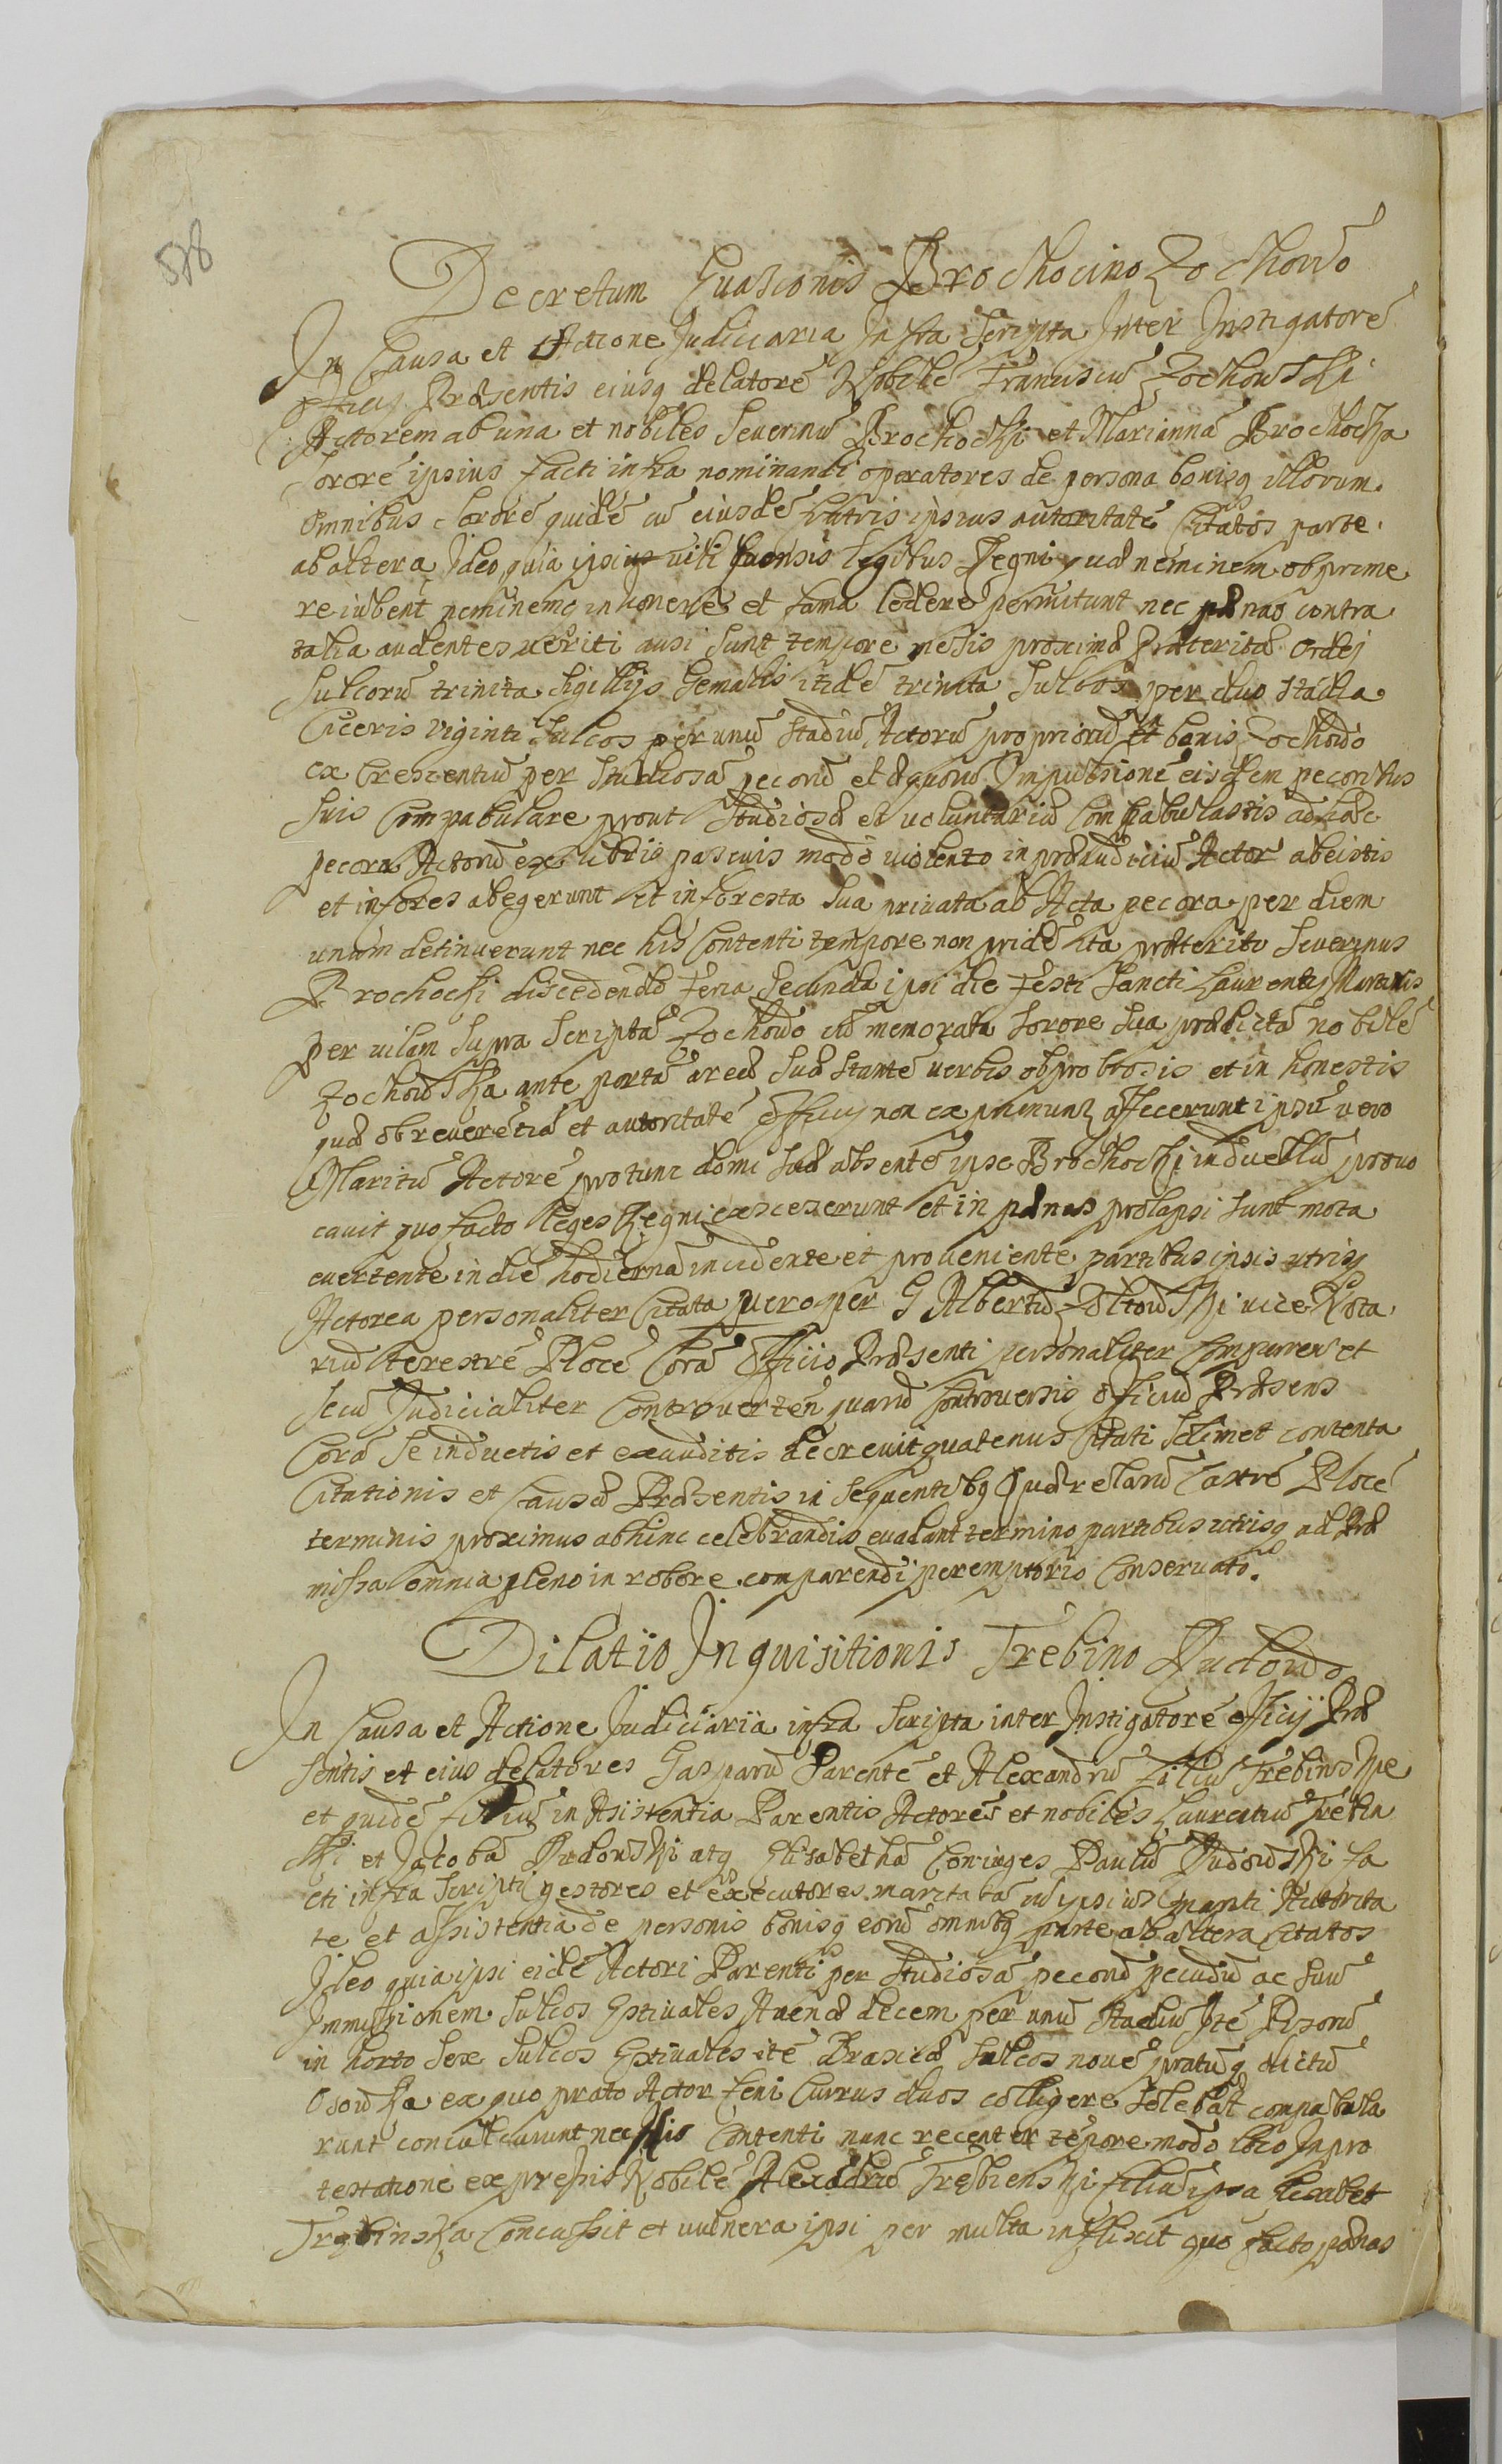 578
Decretum Evasionis Brochocino Zochowo
In Causa et Actione Judiciaria Infra Scripta Inter Instigatorē
Officij Præsentis eiusq delatorē Nobilē Franciscū Zochowski
Actorem ab una et nobiles Severinū Brochocki et Mariannā Brochocka
Sororē ipsius facti infra nominandi operatores de persona bonisq illorum
Omnibus Sororē quidē cū eiusdē fratris ipsius autoritatē Citatos parte
ab altera Ideo quia ipsi legibus Regni quæ neminem obprime
re iubent neminemq in honere et fama ledere permitunt nec pænas contra
talia audentes veriti ausi sunt tempore mesis proximæ præteritæ Ordej
Sulcorū trinita Sigillijs Gemalis itidē trinita Sulcos per duo Stadia
Ciceris viginti Sulcos per unū Stadiū Actorū propriorū et bonis Zochowo
ex Crescentiū per Studiosā pecorū et æquorū Impulsionē eisdem pecoribus
Suis Compabulare prout Studiosæ et voluntariæ Compabulastis ad hæc
pecora Actorū ex libris pascuis modo violento in præiudiciū Actor abeistis
et in fores abegerunt et in foresta Sua privata ab Acta pecora per diem
unum detinuerunt nec his Contenti tempore non pridē ita præterito Severinus
Brochocki discedendo Feria Secunda ipsi die Festi Sancti Laurentij Martiris
per vilam Supra Scriptā Zochowo cū memorata Sorore Sua prædictā nobilē
Zochowska ante portā areæ Suæ Stantē verbis obprobrosis et in honestis
quæ ob reverētiā et autoritatē Officij non exprimunt affecerunt ipsū vero
Maritū Actorē pro tunc domi Suæ absentē ipse Brochocki in duellū provo
cavit quo facto leges Regni excesserunt et in pænas prolapsi sunt mota
evertente in diē hodiernā incidente et proveniente partibus ipsis utrisq
Actorea personaliter Citata vero per G Albertū Zoltowski vice Nota
riū terestrē Plocē Corā Officio Præsenti personaliter Comparen et
Secū Judicialiter Controvertēn quarū Controversis Officiū Præsens
Corā Se inductis et exauditis decrevit quatenus Citati Selimet contenta
Citationis et Causæ Præsentis in Sequentibq Quærelarū Castrē Plocē
terminis proximus abhinc celebrandis evadant termino partibus utrisq ad Præ
missa omnia pleno in robore comparendi peremptorio Conservato.
Dilatio Inquisitionis Trebino Rudowo
In Causa et Actione Judiciaria infra Scripta inter Instigatorē Officij Præ
sentis et eius delatores Gasparū Parentē et Alexandrū Filiū Trebinskie
et quidē filiū in Asistentia Parentis Actores et nobiles Laurentiū Trebin
ski et Jacobā Rudowski atq Elisabethā Coniuges Paulū Rudowski fa
cti infra Scripti gestores et executores maritatā cū ipsius mariti Autorita
te et assistentia de personis bonisq eorū omnibq parte ab altera Citatos
Ideo quia ipsi eidē Actori Parenti per Studiosā pecorū pecudū ac Suū
Immissionem Sulcos Estivales Avenæ decem per unū Stadiū Itē Pisorū
in horto Sex Sulcos Estivales itē Brasicæ Sulcos novē pratūq dictū
Osowka ex quo prato Actor feni Currus duos colligere Solebāt compabula
runt conculcarunt nec his Contenti nunc recenter tēpore modo loco In pro
testatione expressis Nobilē Alexādrū Trebienski filiū ipsa Elisabet
Trebinska Concussit et vulnera ipsi per multa inflixit quo facto pænas